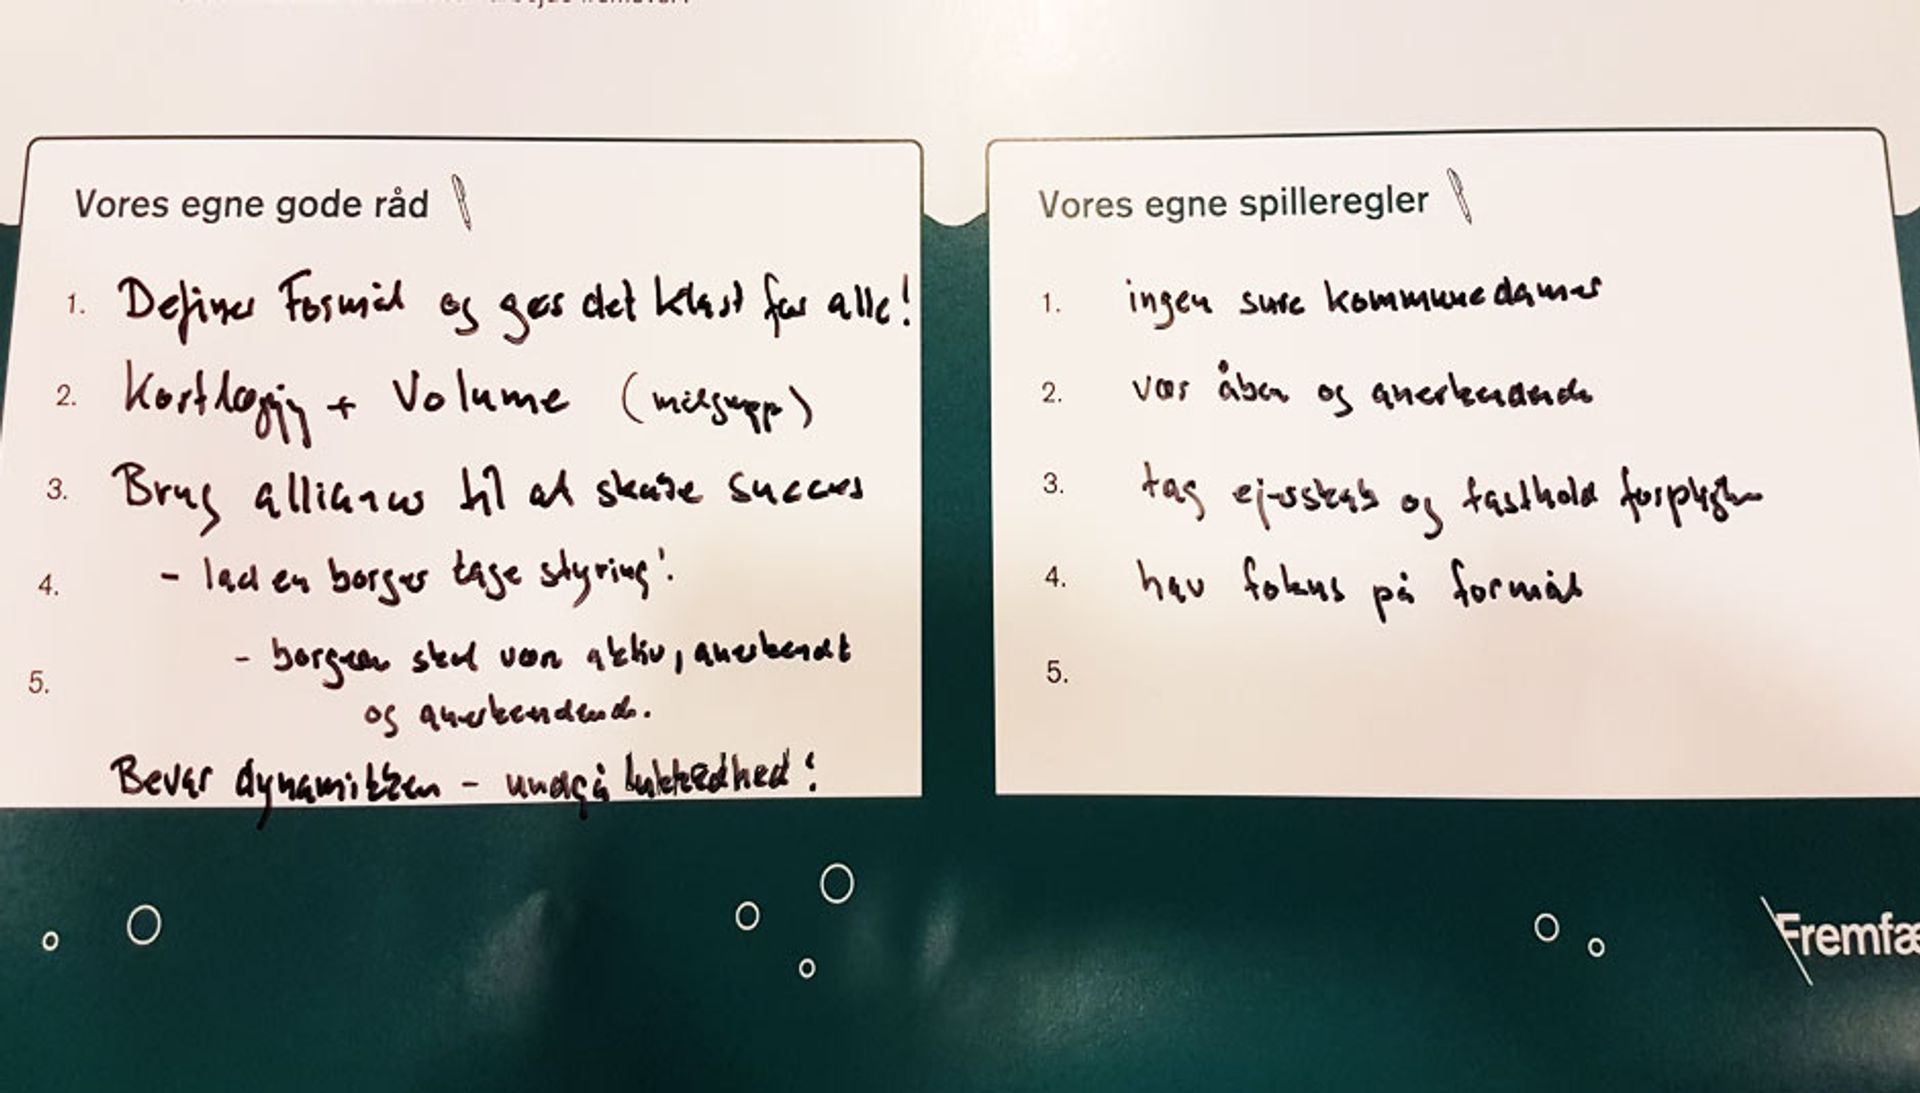 Vores egne gode råd
1. Definer Formål og gør det klart for alle!
2. Kortlægning + Volume (målgruppe)
3. Brug alliancer til at skabe succes
4. - lad en borger tage styring!
5. - borgeren skal være aktiv, anerkendt
og anerkendende.
Bevar dynamikken - undgå lukkedhed!
Vores egne spilleregler
1. ingen sure kommunedamer
2. vær åben og anerkendende
3. tag ejerskab og fasthold
4. hav fokus på formål
5.
Fremfæ